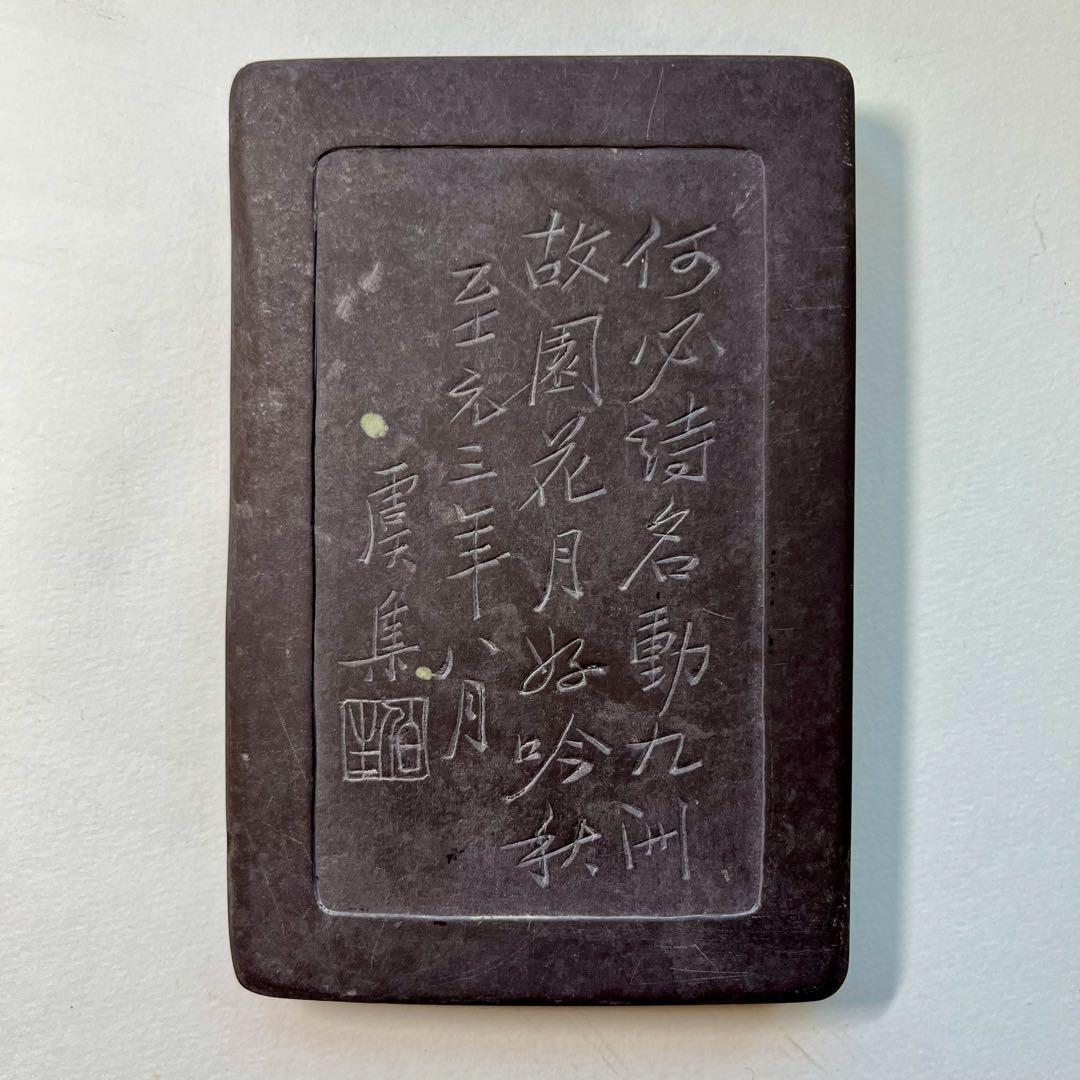 何必詩名動九洲
故園花月好吟秋
至元三年八月
虞集
伯生